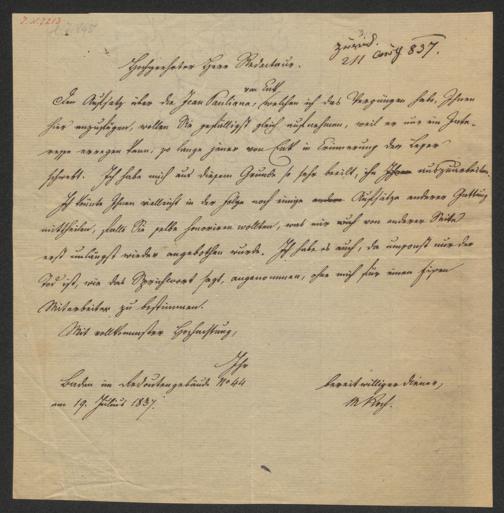 zurück.
211 857.
Hochgeehrter Herr Redacteur.
von Enk
Den Aufsatz über die Jean Pauliana, welchen ich das Vergnügen habe, Ihnen
hier anzufügen, wollen Sie gefälligst gleich aufnehmen, weil er nur ein Inte-
resse erregen kann, so lange jener von Enk in Erinnerung der Leser
schwebt. Ich habe mich aus diesem Grunde so sehr beeilt, ihn auszuarbeiten.
Ich könnte Ihnen vielleicht in der Folge noch einige Aufsätze anderer Gattung
mittheilen, falls Sie selbe honoriren wollten, was mir auch von anderer Seite
erst unlängst wieder angebothen wurde. Ich habe es auch, da umsonst nur der
Tod ist, wie das Sprichwort sagt, angenommen, ohne mich für einen fixen
Mitarbeiter zu bestimmen.
Mit vollkommenster Hochachtung,
Ihr
Baden im Redoutengebäude No 44
bereitwilliger Diener,
am 19. Julius 1837.
M Koch.